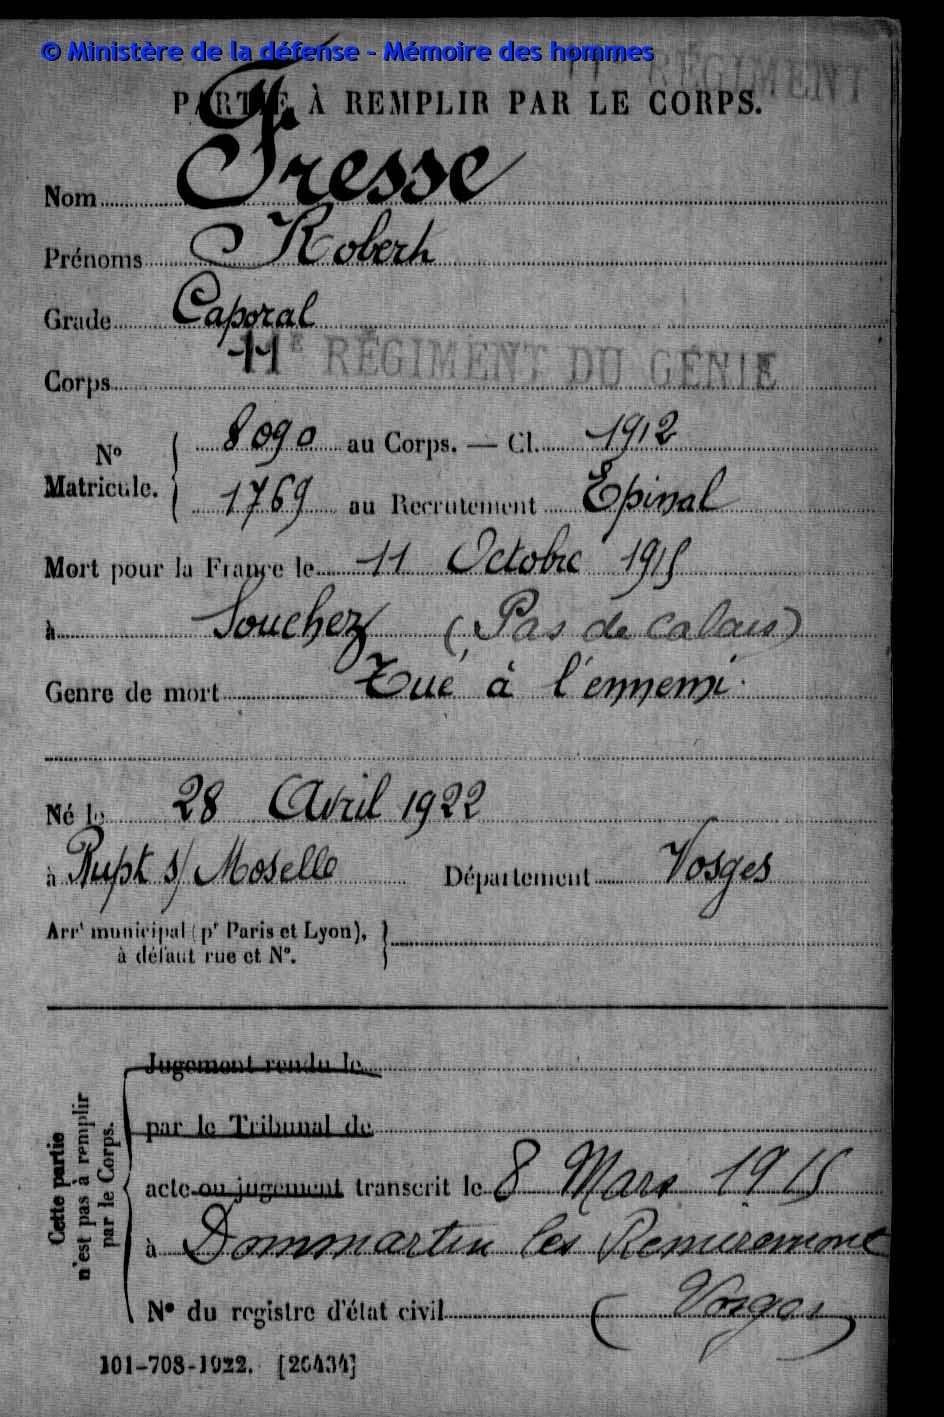 © Ministère de la défense - Mémoire des hommes
11E RÉGIMENT
PARTIE À REMPLIR PAR LE CORPS.
Nom Fresse
Prénoms Robert
Grade Caporal
Corps 11E RÉGIMENT DU GÉNIE
No Matricule. 8090 au Corps. — Cl. 1912
1769 au Recrutement Epinal
Mort pour la France le 11 Octobre 1915
à Souchez (Pas de Calais)
Genre de mort Tué à l'ennemi.
Né le 28 Avril 1922
à Rupt s/ Moselle Département Vosges
Arrt municipal (pr Paris et Lyon),
à défaut rue et No.
Cette partie
n'est pas à remplir
par le Corps.
Jugement rendu le
par le Tribunal de
acte ou jugement transcrit le 8 Mars 1915
à Dommartin les Remiremont
No du registre d'état civil (Vosges)
101-708-1922. [26434]